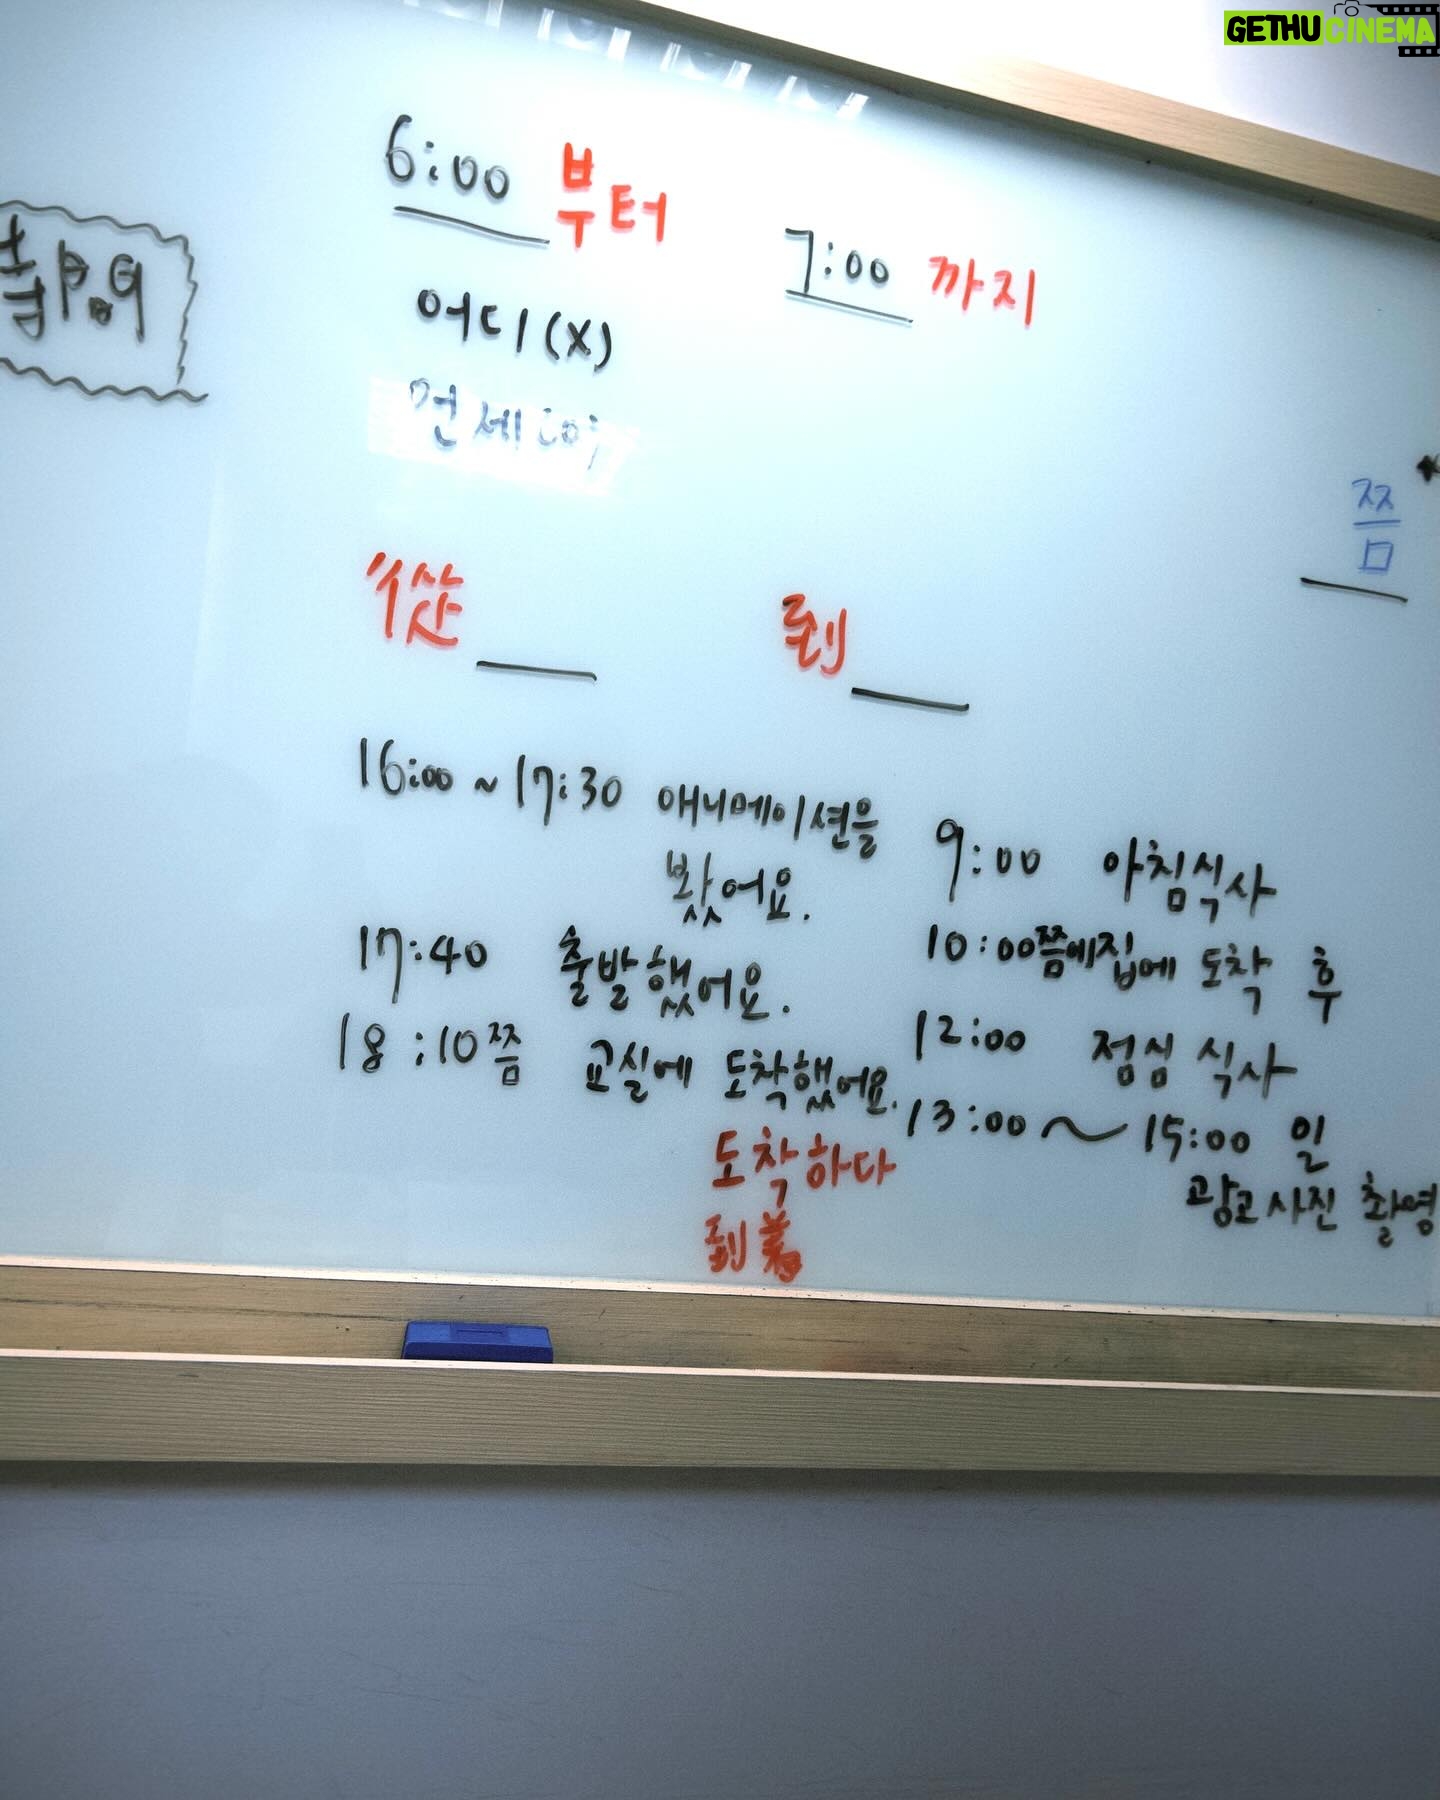 GETHUCINEMA
6:00 부터
7:00 까지
어디(X)
언제(O)
쯤
從
到
16:00 ~ 17:30 애니메이션을
봤어요.
17:40 출발했어요.
18:10쯤 교실에 도착했어요.
도착하다
到着
9:00 아침식사
10:00쯤에집에 도착 후
12:00 점심 식사
13:00 ~ 15:00 일
광고사진 촬영